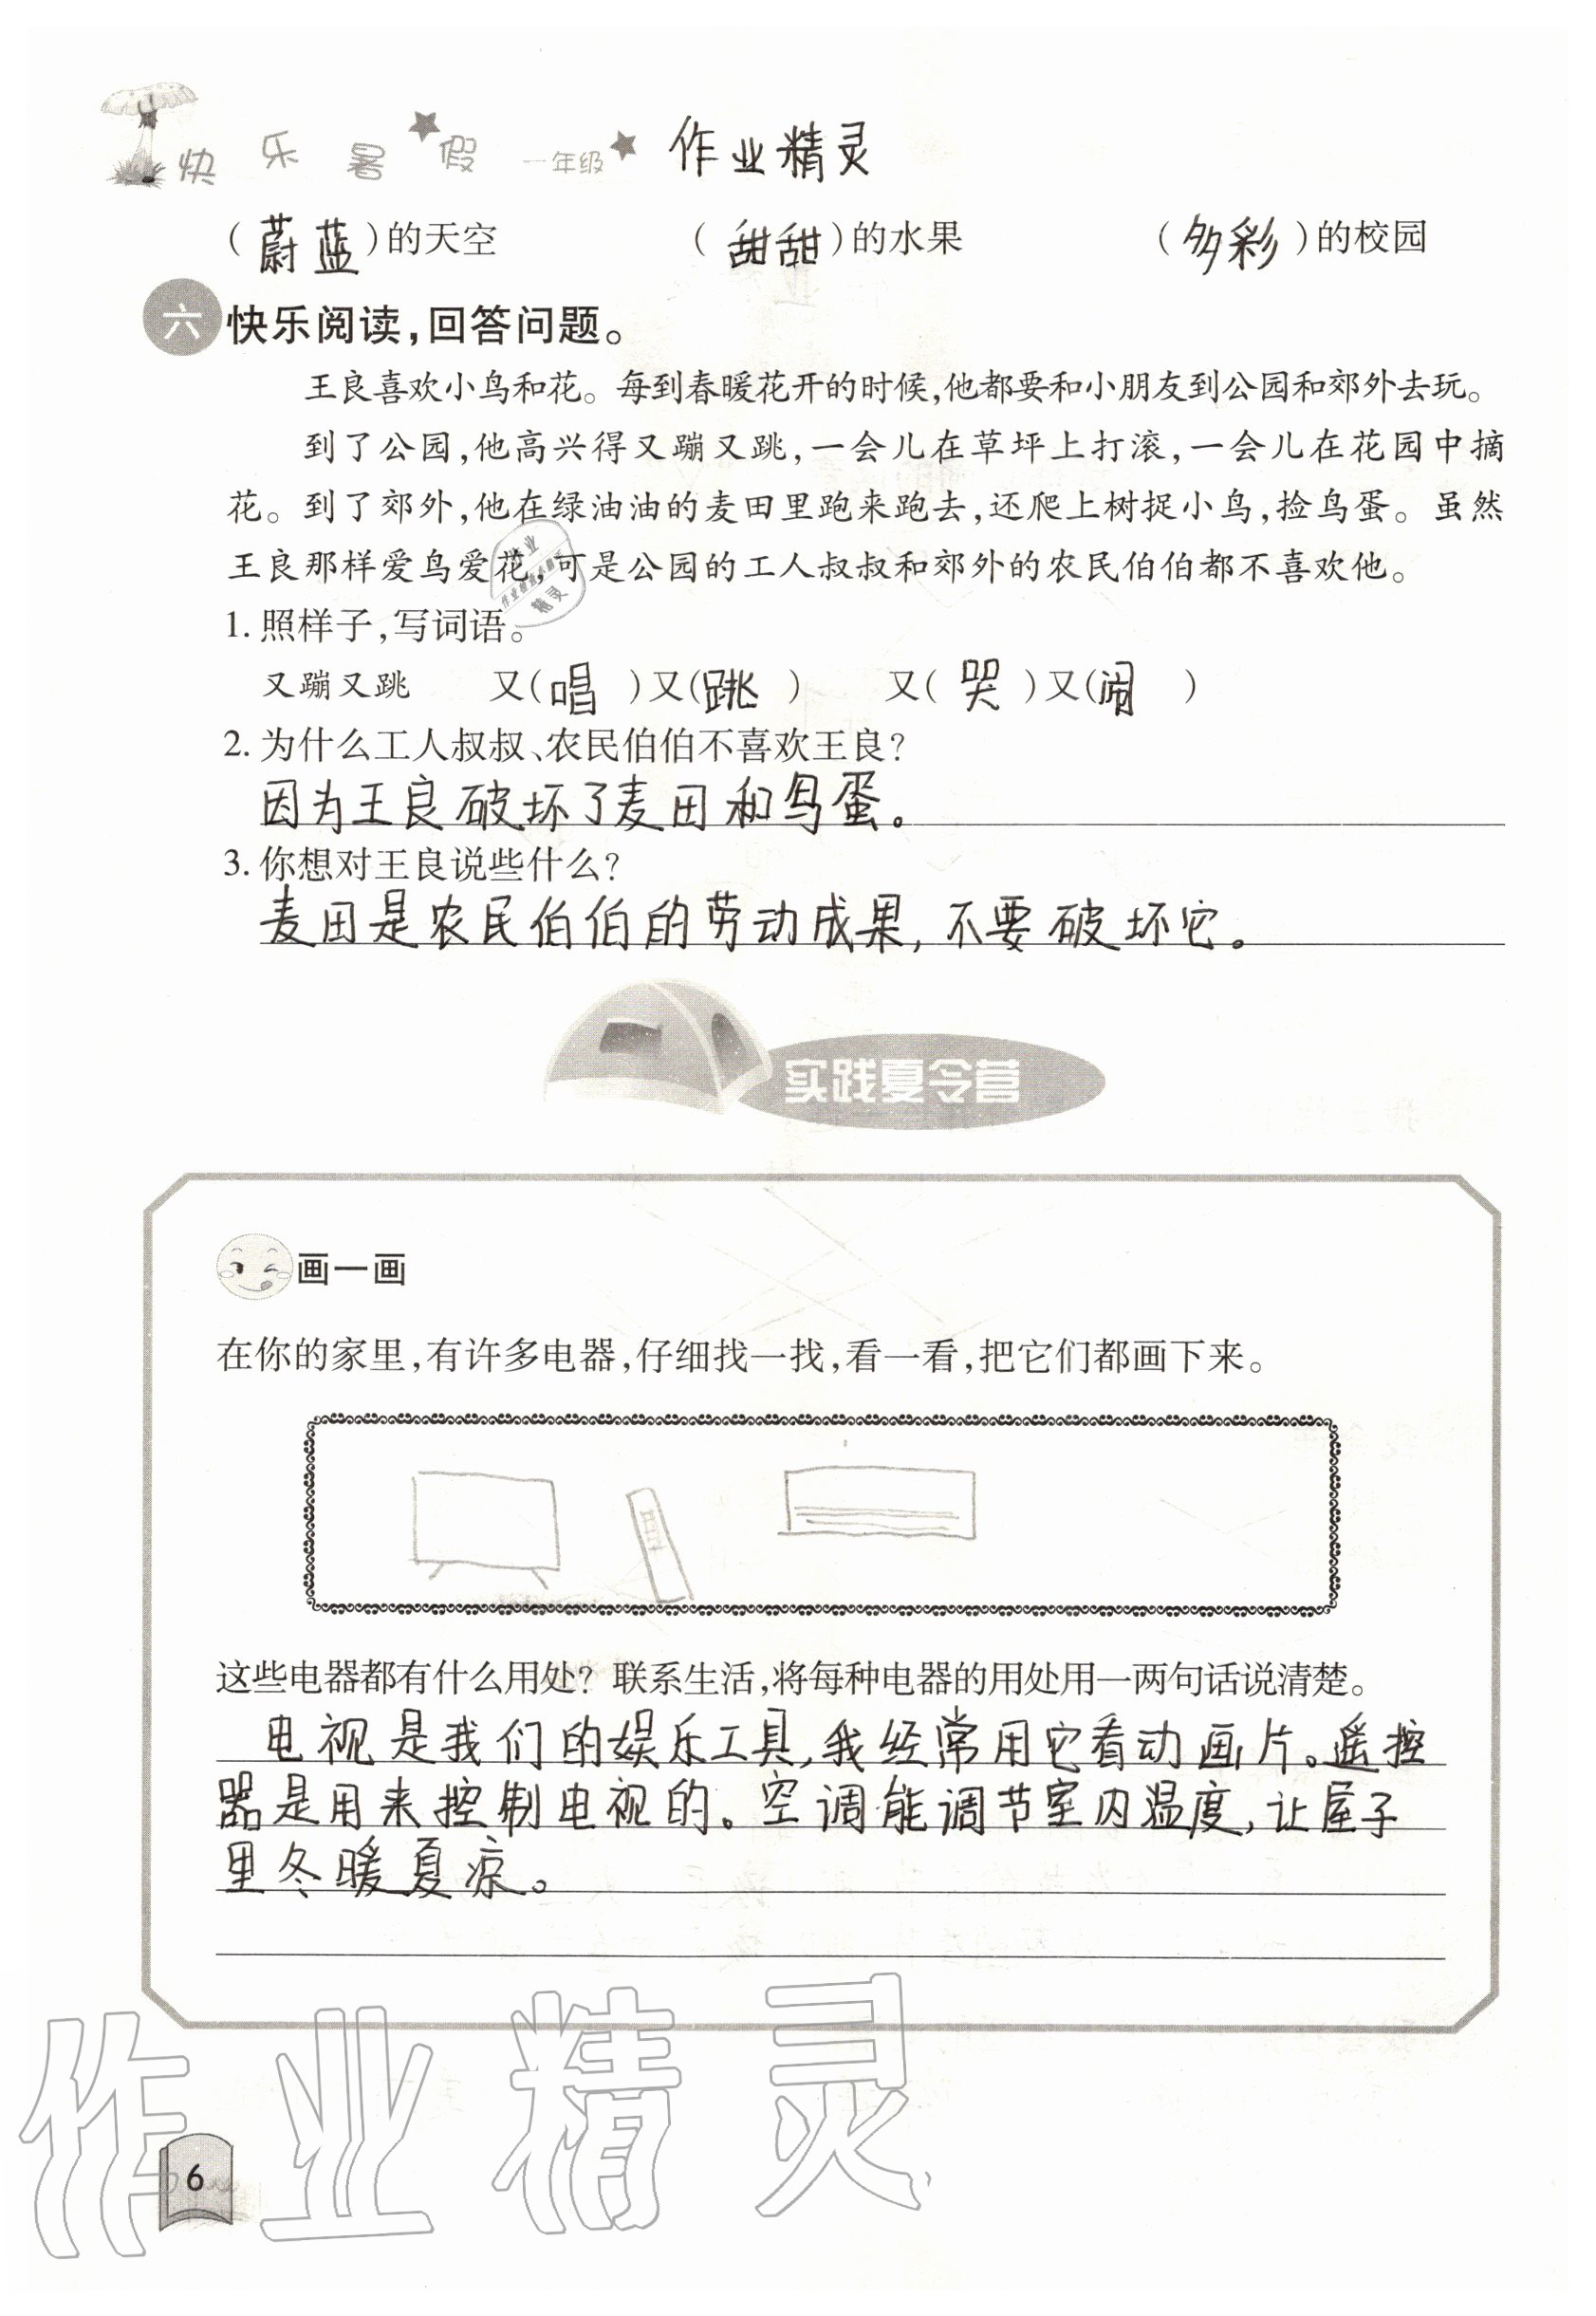 快乐暑假 一年级 作业精灵
(蔚蓝)的天空 (甜甜)的水果 (多彩)的校园
六 快乐阅读,回答问题。
王良喜欢小鸟和花。每到春暖花开的时候,他都要和小朋友到公园和郊外去玩。
到了公园,他高兴得又蹦又跳,一会儿在草坪上打滚,一会儿在花园中摘
花。到了郊外,他在绿油油的麦田里跑来跑去,还爬上树捉小鸟,捡鸟蛋。虽然
王良那样爱鸟爱花,可是公园的工人叔叔和郊外的农民伯伯都不喜欢他。
1. 照样子,写词语。
又蹦又跳 又(唱)又(跳) 又(哭)又(闹)
2. 为什么工人叔叔、农民伯伯不喜欢王良?
因为王良破坏了麦田和鸟蛋。
3. 你想对王良说些什么?
麦田是农民伯伯的劳动成果,不要破坏它。
实践夏令营
画一画
在你的家里,有许多电器,仔细找一找,看一看,把它们都画下来。
这些电器都有什么用处?联系生活,将每种电器的用处用一两句话说清楚。
电视是我们的娱乐工具,我经常用它看动画片。遥控
器是用来控制电视的。空调能调节室内温度,让屋子
里冬暖夏凉。
作业精灵
6